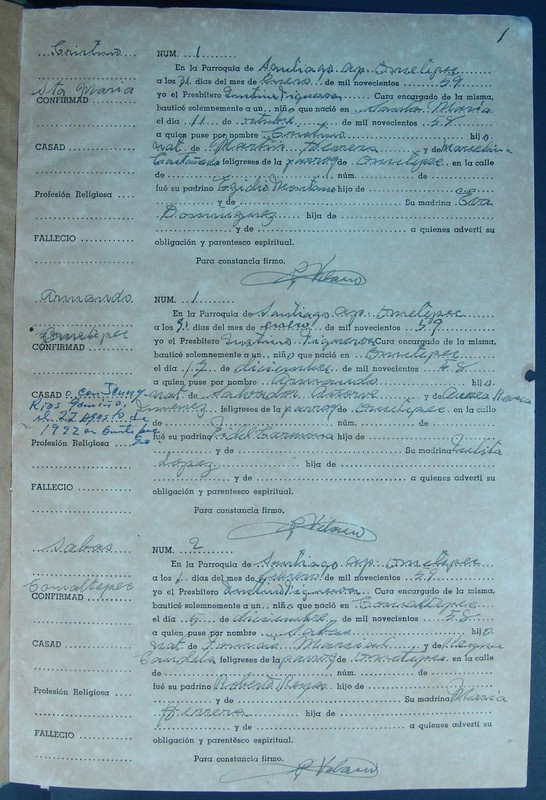 1
Cristino
NUM. 1
En la Parroquia de Santiago Ap. Ometepec
Sta Maria
a los 31 días del mes de Enero de mil novecientos 59
CONFIRMAD
yo el Presbitero Cura encargado de la misma,
bauticé solemnemente a un niño que nació en Santa María
el día 11 de octubre de mil novecientos 58
a quien puse por nombre Cristino hijo
CASAD
nat. de Martin Herrera y de Marcelina
Castañeda feligreses de la parroq de Ometepec en la calle
de núm. de
Profesión Religiosa
fué su padrino Egidio Montano hijo de
y de Su madrina Eva
Dominguez hija de
FALLECIO
y de a quienes advertí su
obligación y parentesco espiritual.
Para constancia firmo.
Armando
NUM. 1
En la Parroquia de Santiago Ap. Ometepec
Ometepec
a los 31 días del mes de enero de mil novecientos 59
CONFIRMAD
yo el Presbitero Cura encargado de la misma,
bauticé solemnemente a un niño que nació en Ometepec
el día 17 de diciembre de mil novecientos 48
a quien puse por nombre Armando hijo
CASAD con Jenny
nat de Salvador y de
Rios
Jimenez feligreses de la parroq de Ometepec en la calle
el 27 Agosto
de núm. de
1982 en
fué su padrino Fidel Carmona hijo de
Profesión Religiosa
y de Su madrina Julita
López hija de
FALLECIO
y de a quienes advertí su
obligación y parentesco espiritual.
Para constancia firmo.
Sabas
NUM. 2
En la Parroquia de Santiago Ap. Ometepec
Comaltepec
a los 1 días del mes de Febrero de mil novecientos 59
CONFIRMAD
yo el Presbitero Cura encargado de la misma,
bauticé solemnemente a un niño que nació en Comaltepec
el día 5 de diciembre de mil novecientos 58
a quien puse por nombre Sabas hijo
CASAD
nat. de Mariscal y de
Candela feligreses de la parroq de Ometepec en la calle
de núm. de
Profesión Religiosa
fué su padrino Roberto Reyes hijo de
y de Su madrina Maria
Herrera hija de
FALLECIO
y de a quienes advertí su
obligación y parentesco espiritual.
Para constancia firmo.